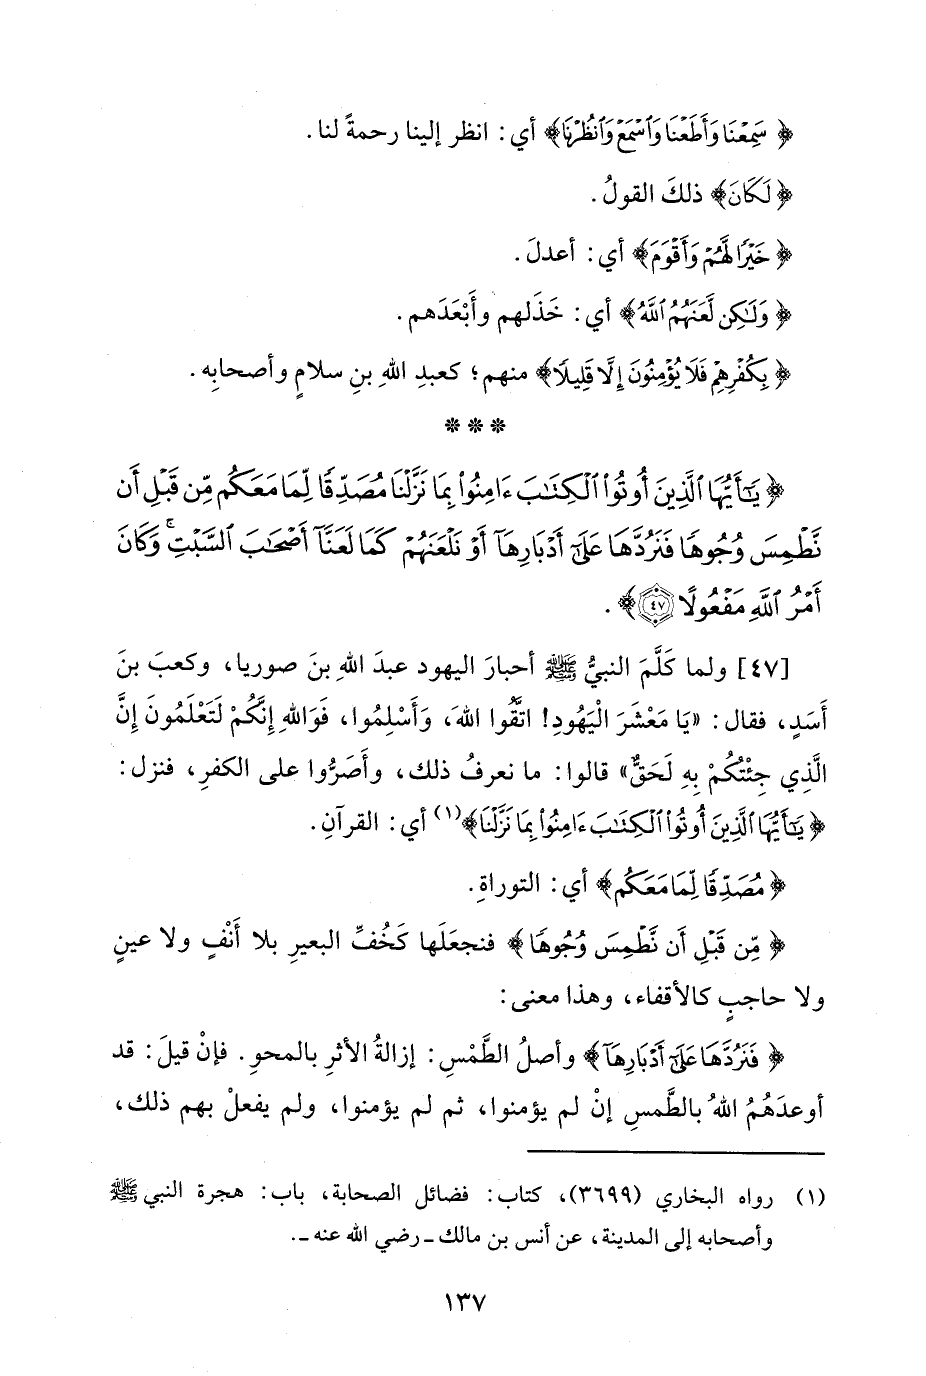 ﴿ سَمِعْنَا وَأَطَعْنَا وَٱسْمَعْ وَٱنظُرْنَا﴾ أي: انظر إلينا رحمةً لنا.
﴿ لَكَانَ﴾ ذلكَ القولُ.
﴿ خَيْرًا لَّهُمْ وَأَقْوَمَ﴾ أي: أعدلَ.
﴿ وَلَـٰكِن لَّعَنَهُمُ ٱللَّهُ﴾ أي: خَذَلهم وأَبْعَدَهم.
﴿ بِكُفْرِهِمْ فَلَا يُؤْمِنُونَ إِلَّا قَلِيلًا﴾ منهم؛ كعبدِ اللهِ بنِ سلامٍ وأصحابِه.
* * *
﴿ يَـٰٓأَيُّهَا ٱلَّذِينَ أُوتُوا۟ ٱلْكِتَـٰبَ ءَامِنُوا۟ بِمَا نَزَّلْنَا مُصَدِّقًا لِّمَا مَعَكُم مِّن قَبْلِ أَن
نَّطْمِسَ وُجُوهًا فَنَرُدَّهَا عَلَىٰٓ أَدْبَارِهَآ أَوْ نَلْعَنَهُمْ كَمَا لَعَنَّآ أَصْحَـٰبَ ٱلسَّبْتِ ۚ وَكَانَ
أَمْرُ ٱللَّهِ مَفْعُولًا ٤٧﴾.
[٤٧] ولما كَلَّمَ النبيُّ ﷺ أحبارَ اليهود عبدَ اللهِ بنَ صوريا، وكعبَ بنَ
أَسَدٍ، فقال: «يَا مَعْشَرَ الْيَهُودِ! اتَّقُوا اللهَ، وَأَسْلِمُوا، فَوَاللهِ إِنَّكُمْ لَتَعْلَمُونَ إِنَّ
الَّذِي جِئْتُكُمْ بِهِ لَحَقٌّ» قالوا: ما نعرفُ ذلك، وأَصَرُّوا على الكفرِ، فنزل:
﴿ يَـٰٓأَيُّهَا ٱلَّذِينَ أُوتُوا۟ ٱلْكِتَـٰبَ ءَامِنُوا۟ بِمَا نَزَّلْنَا﴾(١) أي: القرآنِ.
﴿ مُصَدِّقًا لِّمَا مَعَكُم﴾ أي: التوراةِ.
﴿ مِّن قَبْلِ أَن نَّطْمِسَ وُجُوهًا ﴾ فنجعَلَها كَخُفِّ البعيرِ بلا أَنْفٍ ولا عينٍ
ولا حاجبٍ كالأقفاء، وهذا معنى:
﴿ فَنَرُدَّهَا عَلَىٰٓ أَدْبَارِهَآ﴾ وأصلُ الطَّمْسِ: إزالةُ الأثرِ بالمحوِ. فإنْ قيلَ: قد
أوعدَهُمُ اللهُ بالطَّمسِ إنْ لم يؤمنوا، ثم لم يؤمنوا، ولم يفعلْ بهم ذلك،
(١) رواه البخاري (٣٦٩٩)، كتاب: فضائل الصحابة، باب: هجرة النبي ﷺ
وأصحابه إلى المدينة، عن أنس بن مالك ـ رضي الله عنه ـ.
١٣٧